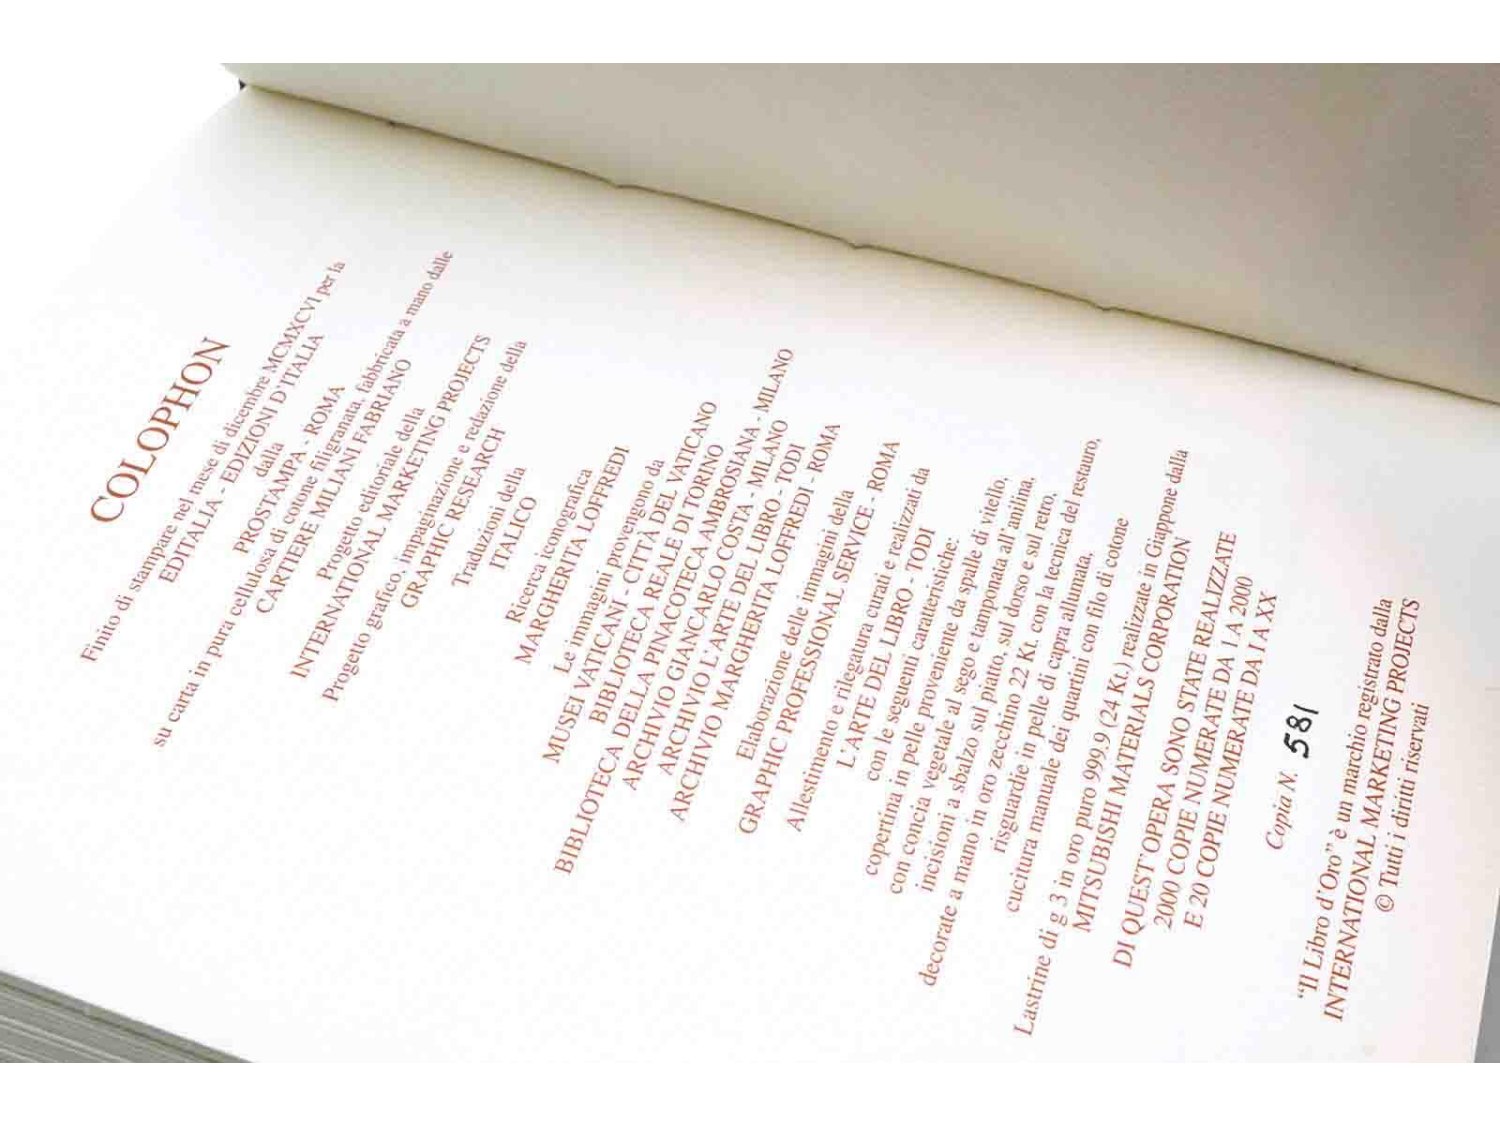 COLOPHON
Finito di stampare nel mese di dicembre MCMXCVI per la
EDITALIA - EDIZIONI D'ITALIA
dalla
PROSTAMPA - ROMA
su carta in pura cellulosa di cotone filigranata, fabbricata a mano dalle
CARTIERE MILIANI FABRIANO
Progetto editoriale della
INTERNATIONAL MARKETING PROJECTS
Progetto grafico, impaginazione e redazione della
GRAPHIC RESEARCH
Traduzioni della
ITALICO
Ricerca iconografica
MARGHERITA LOFFREDI
Le immagini provengono da
MUSEI VATICANI - CITTÀ DEL VATICANO
BIBLIOTECA REALE DI TORINO
BIBLIOTECA DELLA PINACOTECA AMBROSIANA - MILANO
ARCHIVIO GIANCARLO COSTA - MILANO
ARCHIVIO L'ARTE DEL LIBRO - TODI
ARCHIVIO MARGHERITA LOFFREDI - ROMA
Elaborazione delle immagini della
GRAPHIC PROFESSIONAL SERVICE - ROMA
Allestimento e rilegatura curati e realizzati da
L'ARTE DEL LIBRO - TODI
con le seguenti caratteristiche:
copertina in pelle proveniente da spalle di vitello,
con concia vegetale al sego e tamponata all'anilina,
incisioni a sbalzo sul piatto, sul dorso e sul retro,
decorate a mano in oro zecchino 22 Kt. con la tecnica del restauro,
risguardie in pelle di capra allumata,
cucitura manuale dei quartini con filo di cotone
Lastrine di g 3 in oro puro 999.9 (24 Kt.) realizzate in Giappone dalla
MITSUBISHI MATERIALS CORPORATION
DI QUEST'OPERA SONO STATE REALIZZATE
2000 COPIE NUMERATE DA 1 A 2000
E 20 COPIE NUMERATE DA I A XX
Copia N. 581
"Il Libro d'Oro" è un marchio registrato dalla
INTERNATIONAL MARKETING PROJECTS
© Tutti i diritti riservati